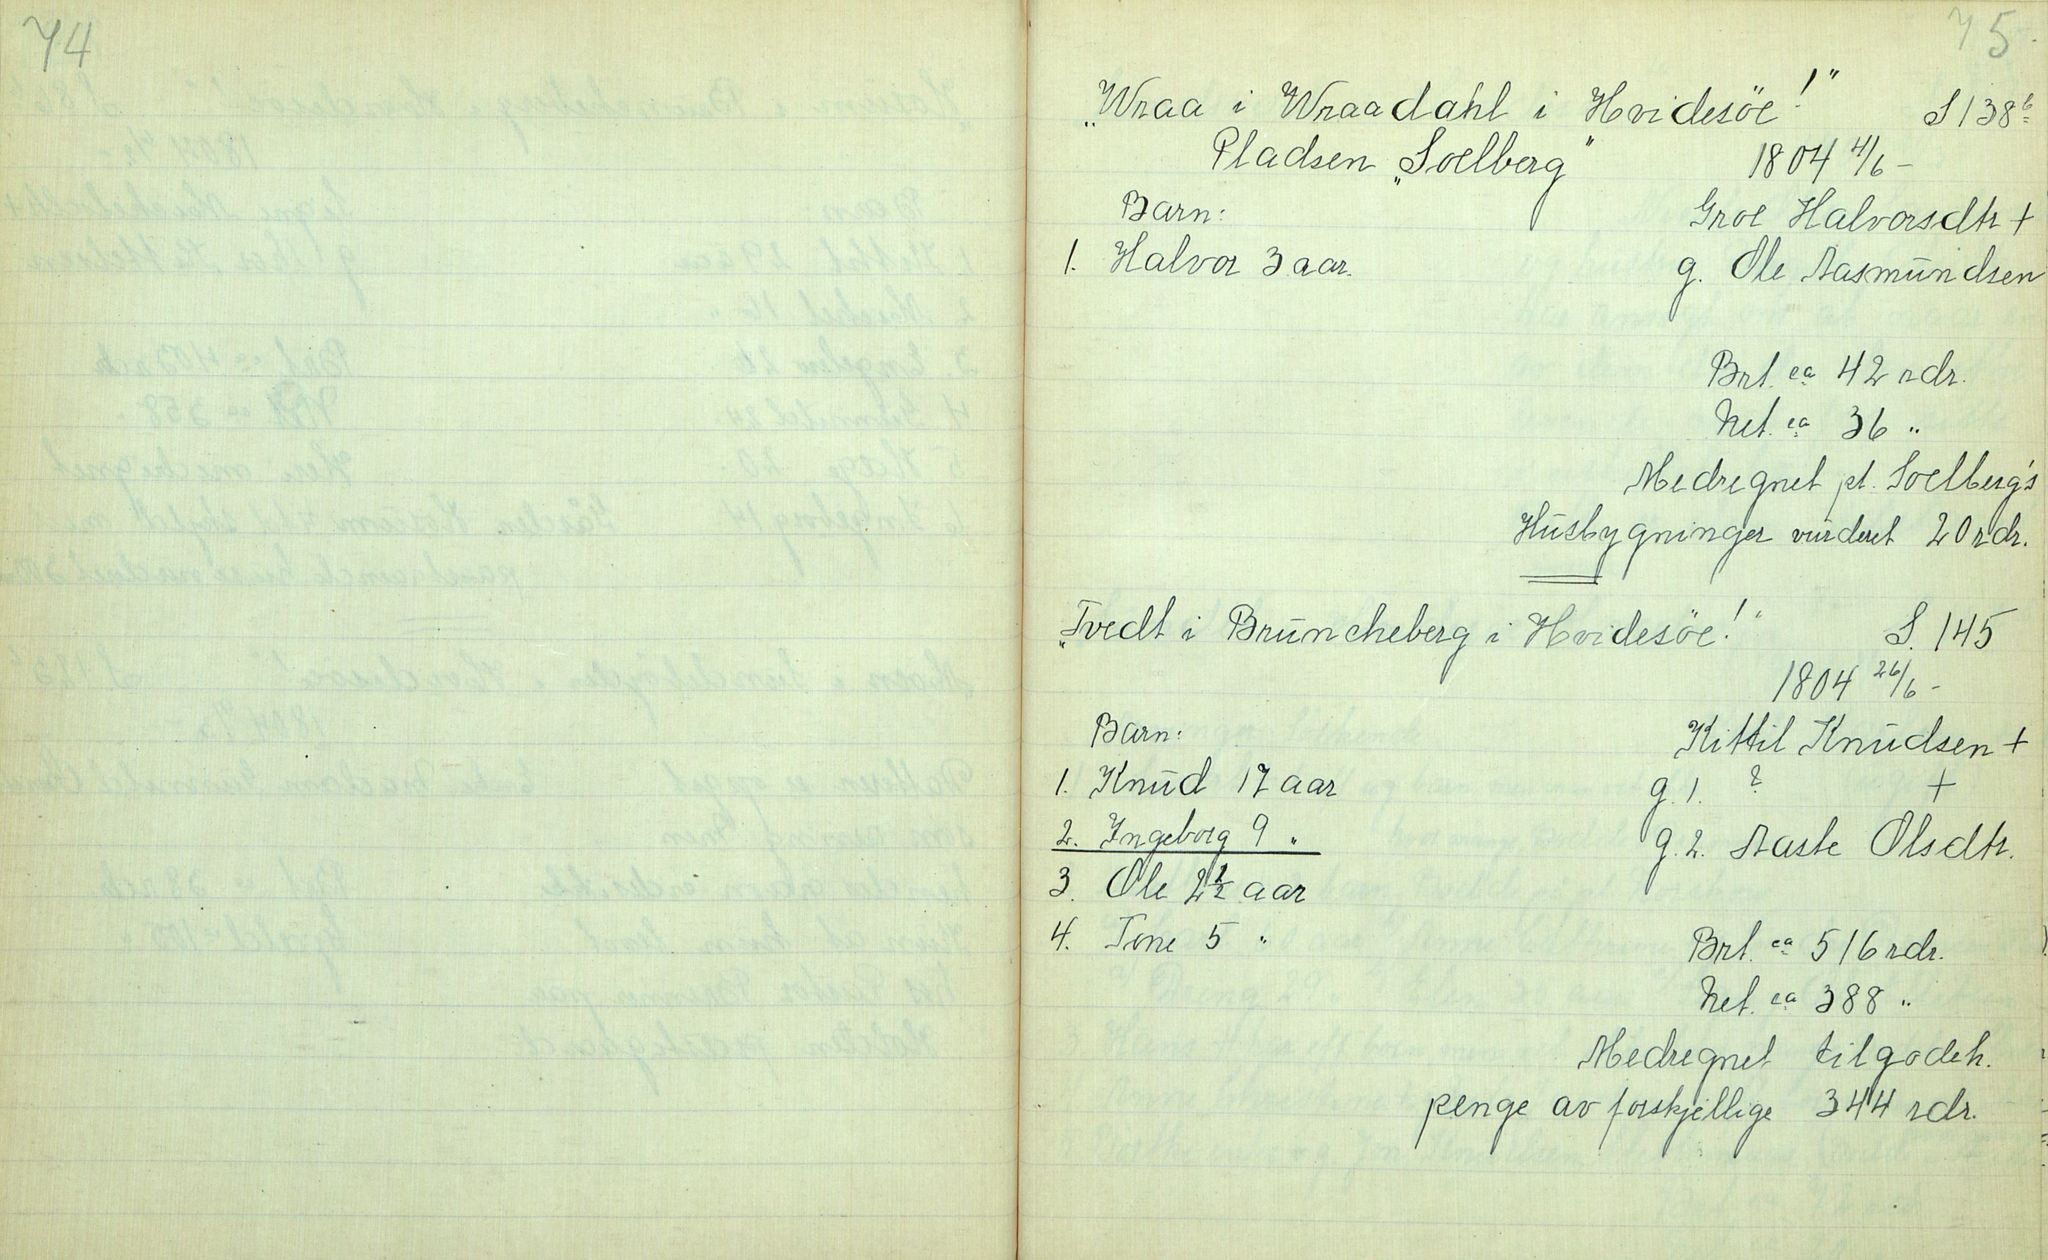 74
75
„Wraa i Wraadahl i Hvidesöe!" S 138b
Pladsen „Soelberg" 1804 4/6 –
Barn: Groe Halvorsdtr +
1. Halvor 3 aar. g. Ole Aasmundsen
Brt. ca 42 rdr.
Net. ca 36 "
Medregnet pl. Soelberg's
Husbygninger vurderet 20 rdr.
„Tvedt i Bruncheberg i Hvidesöe!" S. 145
1804 26/6 –
Barn: Kittil Knudsen +
1. Knud 17 aar g. 1. ? +
2. Ingeborg 9 " g. 2. Aaste Olsdtr.
3. Ole 2½ aar
4. Tone 5 " Brt. ca 516 rdr.
Net. ca 388 "
Medregnet tilgodeh.
penge av forskjellige 344 rdr.